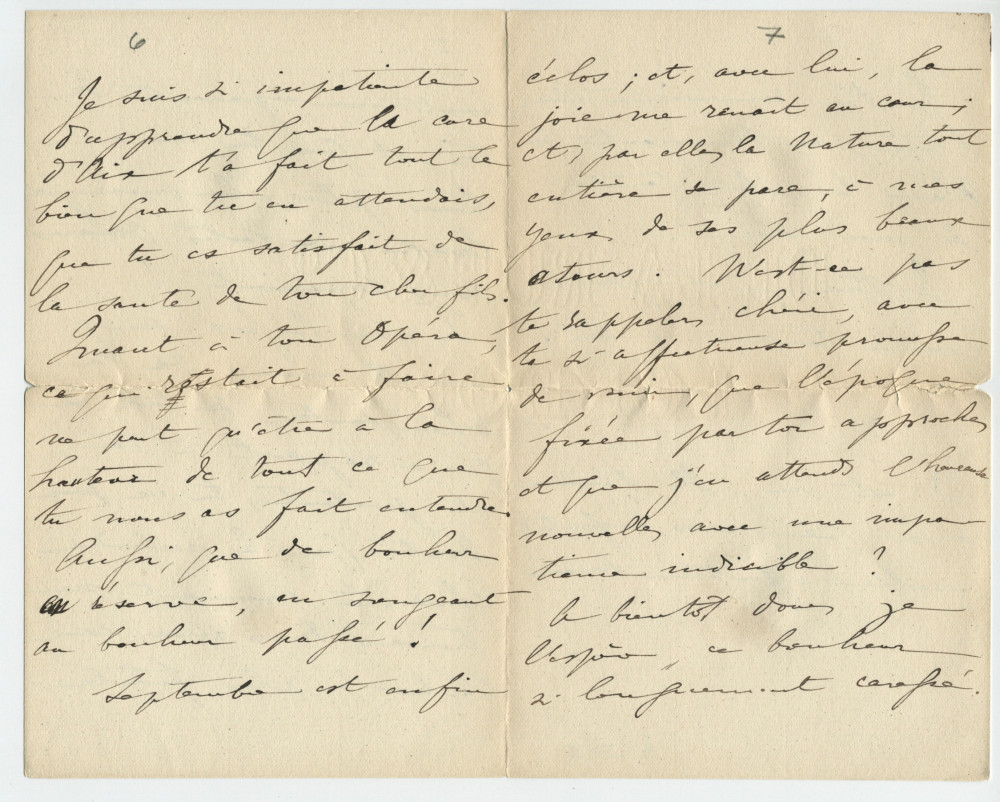 6
Je suis si impatiente
d'apprendre que la cure
d'Aix t'a fait tout le
bien que tu en attendais,
que tu es satisfait de
la santé de ton cher fils.
Quant à ton Opéra,
ce qui restait à faire
ne peut qu'être à la
hauteur de tout ce que
tu nous as fait entendre.
Aussi, que de bonheur
en réserve, en songeant
au bonheur passé !
Septembre est enfin
7
éclos ; et, avec lui, la
joie me renaît au cœur ;
et, par elle, la Nature tout
entière se pare, à mes
yeux, de ses plus beaux
atours. N'est-ce pas
te rappeler, chéri, avec
ta si affectueuse promesse
de venir, que l'époque
fixée par toi approche,
et que j'en attends l'heureuse
nouvelle, avec une impa-
tience indicible ?
A bientôt donc, je
l'espère, ce bonheur
si longuement caressé.